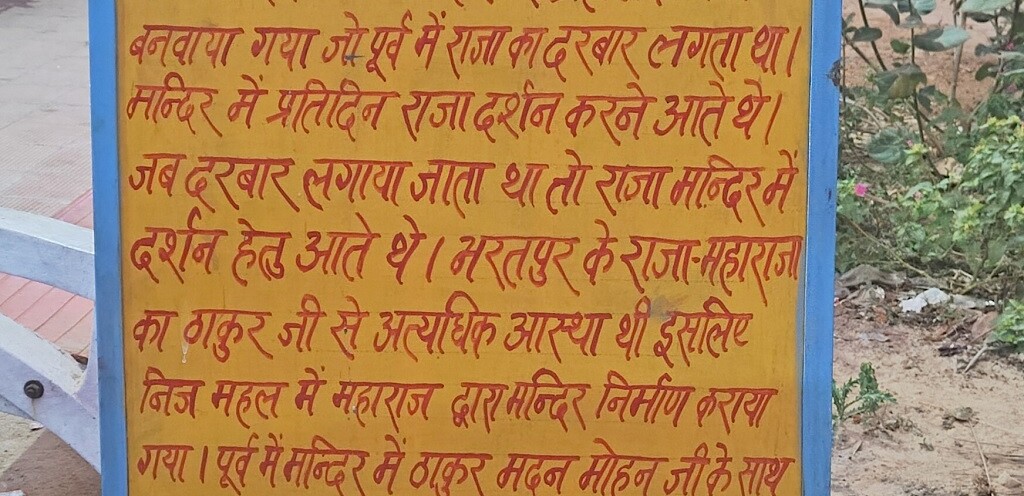 बनवाया गया जो पूर्व में राजा का दरबार लगता था।
मन्दिर में प्रतिदिन राजा दर्शन करने आते थे।
जब दरबार लगाया जाता था तो राजा मन्दिर में
दर्शन हेतु आते थे। भरतपुर के राजा-महाराजा
का ठाकुर जी से अत्यधिक आस्था थी इसलिए
निज महल में महाराज द्वारा मन्दिर निर्माण कराया
गया। पूर्व में मन्दिर में ठाकुर मदन मोहन जी के साथ